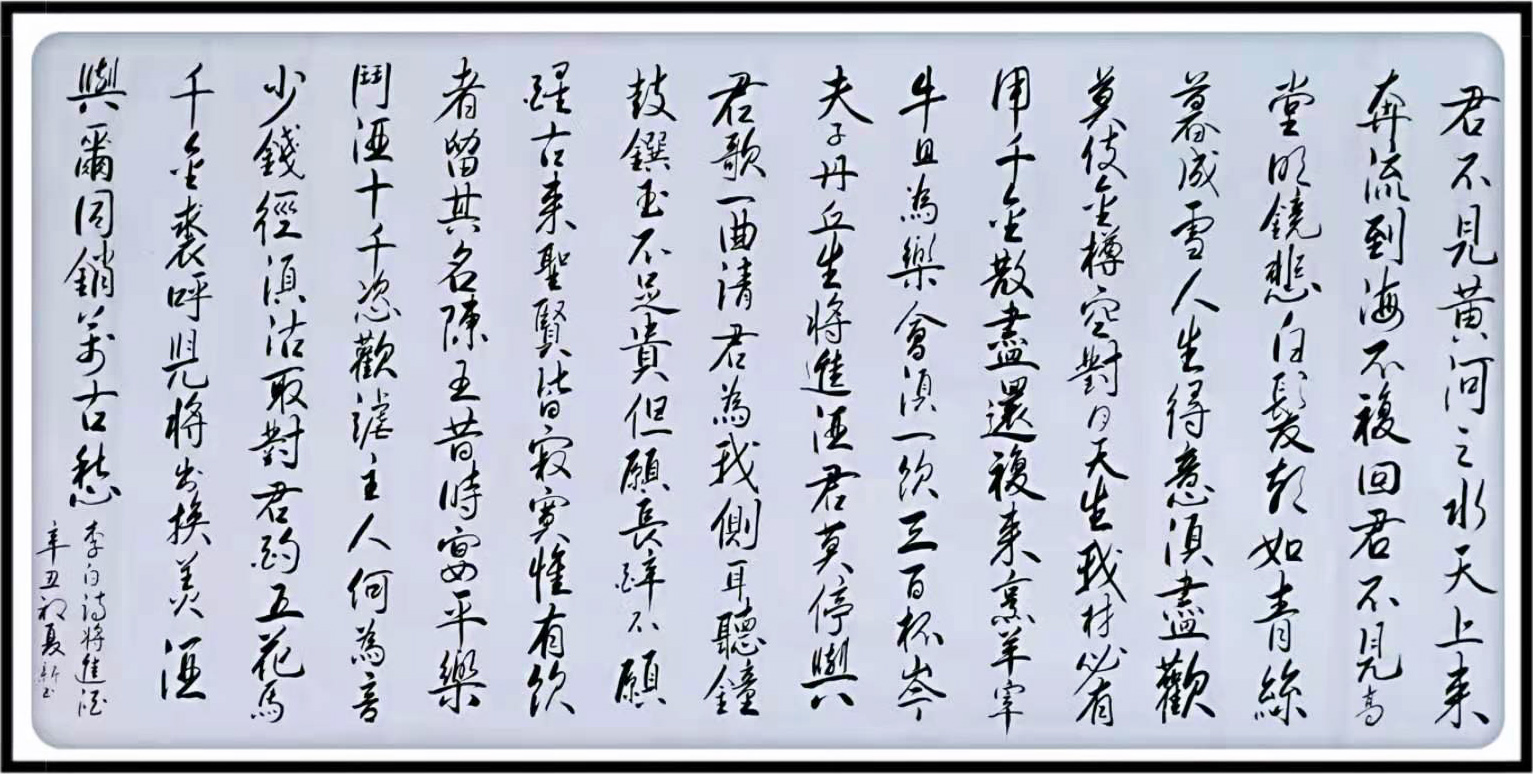 君不見黄河之水天上来
奔流到海不複回君不見高
堂明鏡悲白髮朝如青絲
暮成雪人生得意須盡歡
莫使金樽空對月天生我材必有
用千金散盡還複来烹羊宰
牛且為樂會須一飲三百杯岑
夫子丹丘生将進酒君莫停與
君歌一曲請君為我側耳聽鐘
鼓饌玉不足貴但願長醉不願
醒古来聖賢皆寂寞惟有飲
者留其名陳王昔時宴平樂
鬥酒十千恣歡謔主人何為言
少錢徑須沽取對君酌五花馬
千金裘呼兒将出換美酒
與爾同銷萬古愁
李白詩将進酒
辛丑初夏